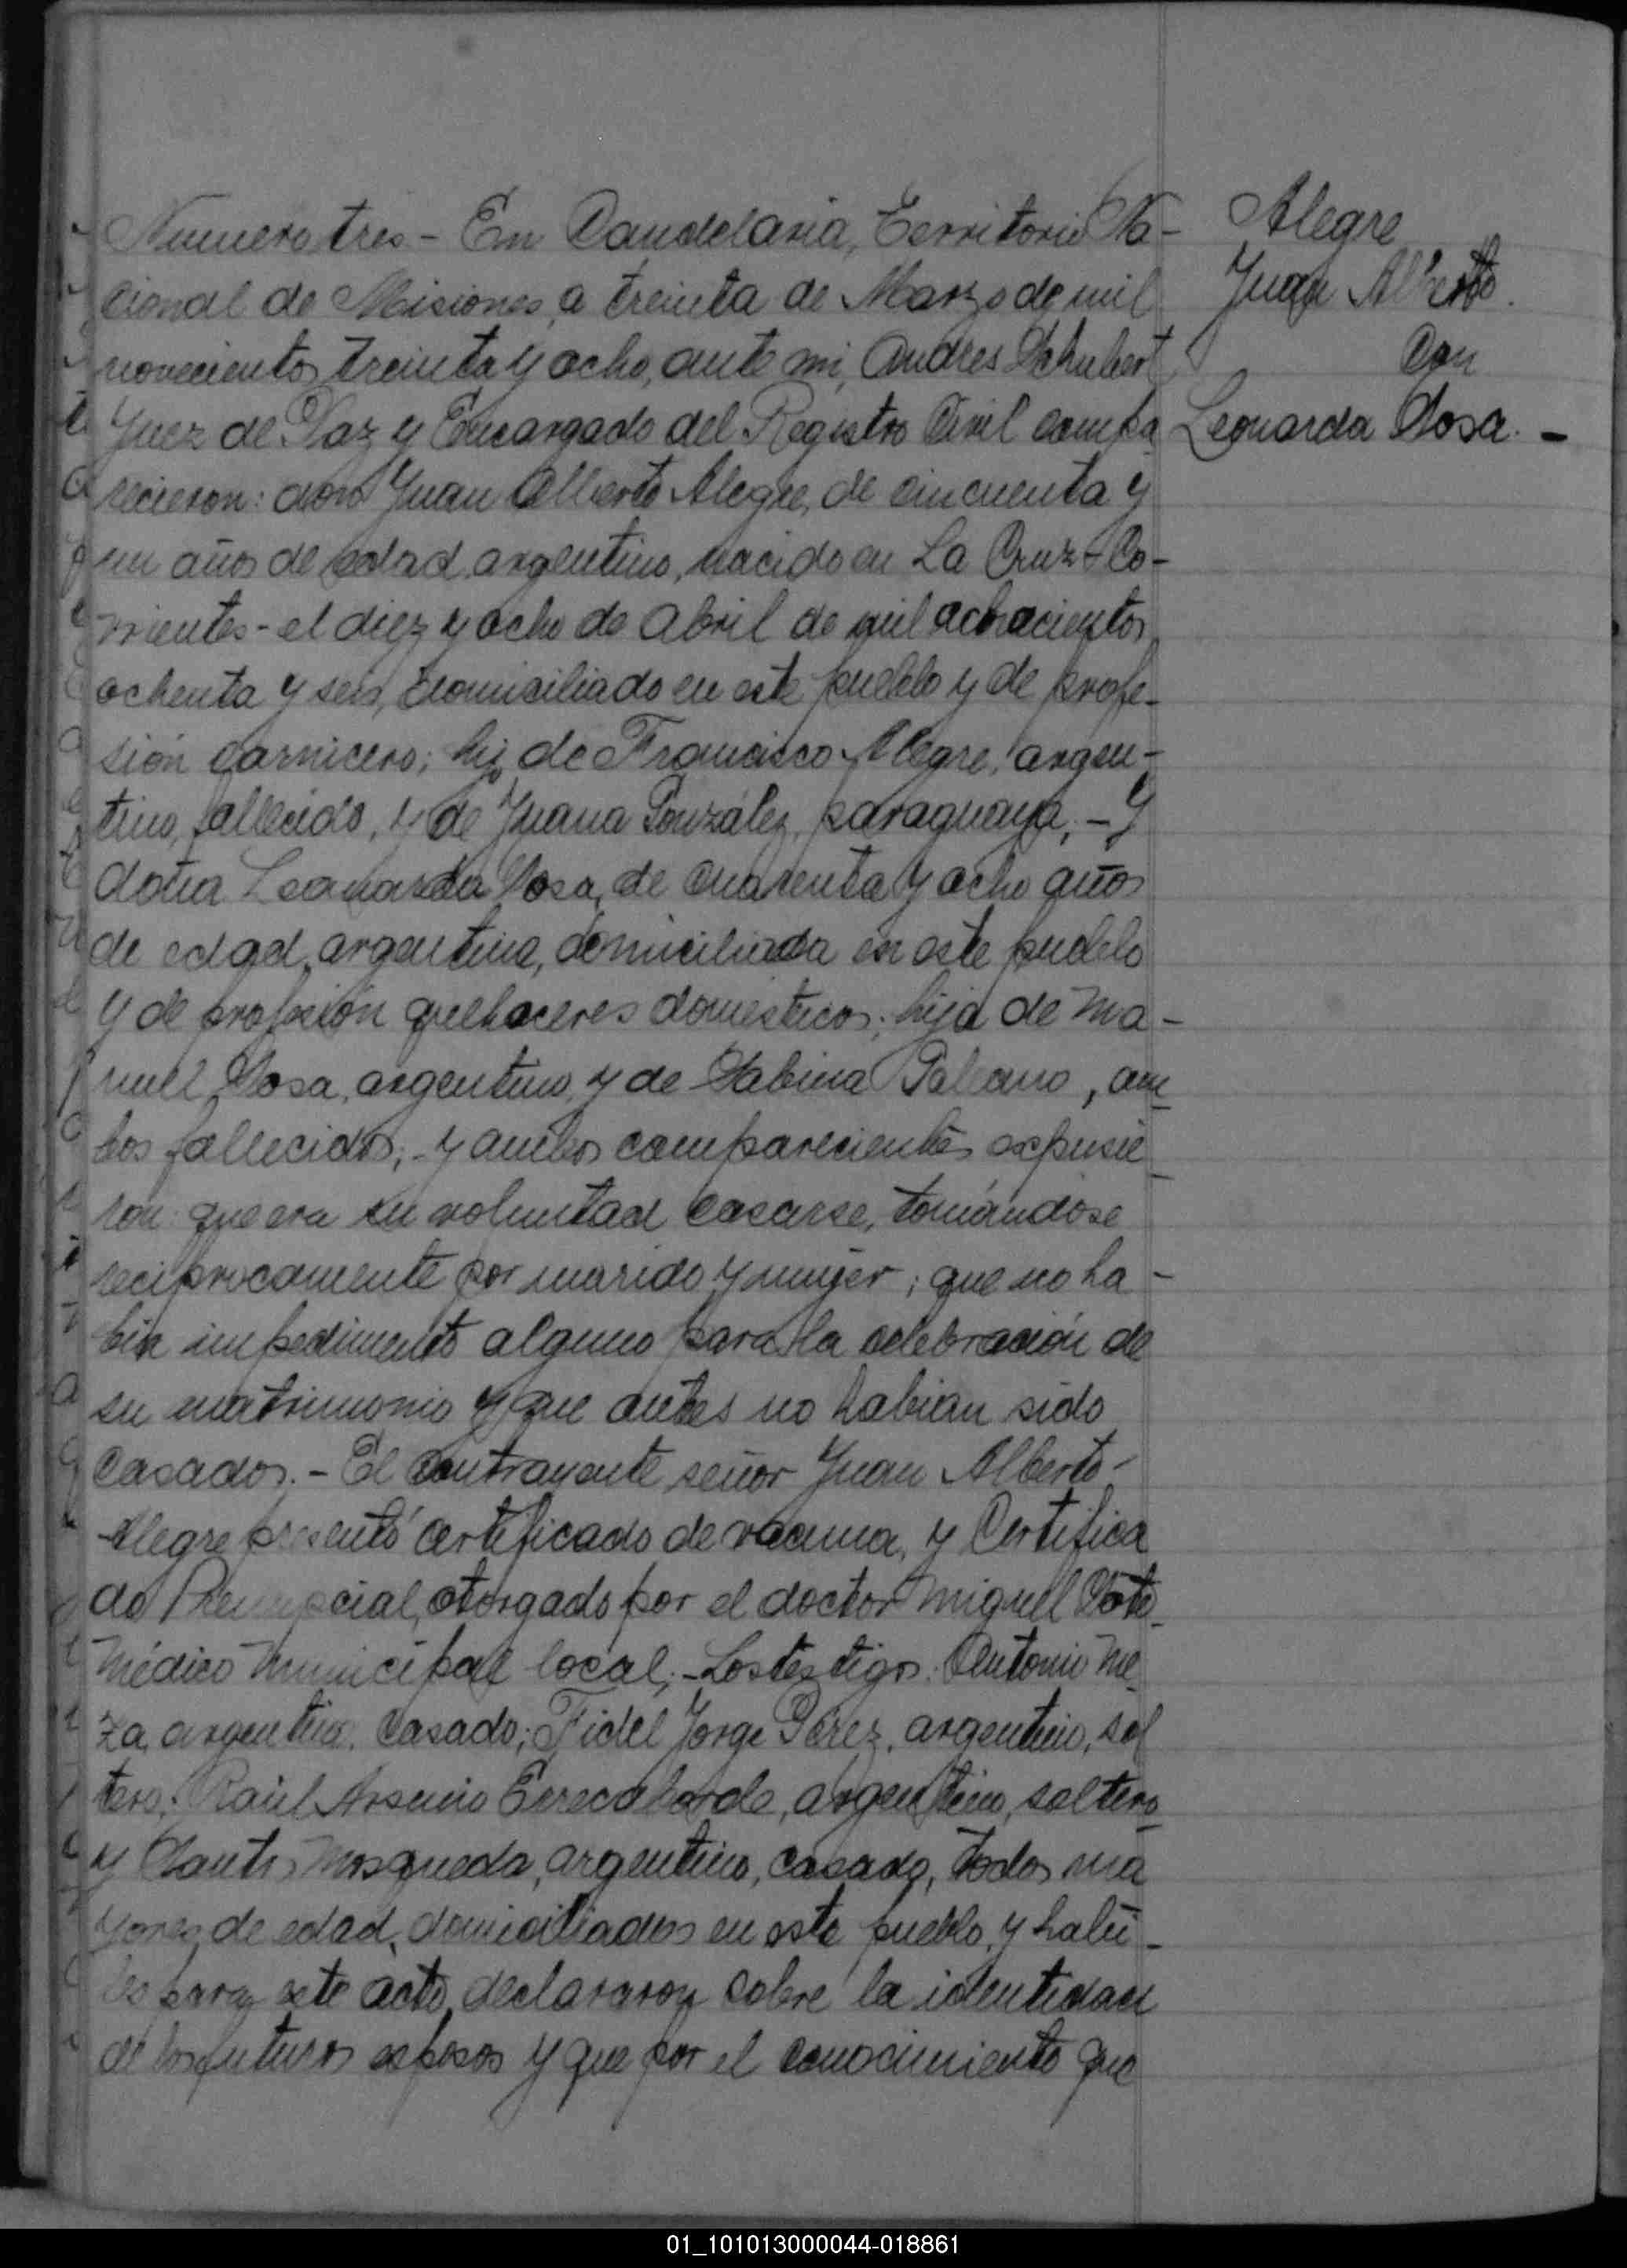 Numero tres - En Candelaria, Territorio Na-
cional de Misiones, a treinta de Marzo de mil
novecientos treinta y ocho, ante mi, Andres Schubert
Juez de Paz y Encargado del Registro Civil compa
recieron: don Juan Alberto Alegre, de cincuenta y
un años de edad, argentino, nacido en La Cruz - Co-
rrientes - el diez y ocho de Abril de mil ochocientos
ochenta y seis, domiciliado en este pueblo y de profe-
sión carnicero; hijo de Francisco Alegre, argen-
tino, fallecido, y de Juana González, paraguaya; - Y
doña Leonarda Sosa, de cuarenta y ocho años
de edad, argentina, domiciliada en este pueblo
y de profesión quehaceres domésticos; hija de Ma-
nuel Sosa, argentino, y de Sabina Galeano, am
bos fallecidos; - y ambos comparecientes expusie
ron: que era su voluntad casarse, tomándose
reciprocamente por marido y mujer; que no ha-
bia impedimento alguno para la celebración de
su matrimonio y que antes no habian sido
casados. - El contrayente señor Juan Alberto
Alegre presentó certificado de vacuna, y Certifica
do otorgado por el doctor Miguel
Médico Municipal local; - Los testigos: Antonio Me
za, argentino, casado; Fidel Jorge Pérez, argentino, sol
tero; Raúl Arsenio Errecaborde, argentino, soltero
y Santos Mosqueda, argentino, casado, todos ma
yores de edad, domiciliados en este pueblo, y habi-
les para este acto, declararon sobre la identidad
de los futuros esposos y que por el conocimiento que
Alegre
Juan Alberto.
Con
Leonarda Sosa. -
01_101013000044-018861